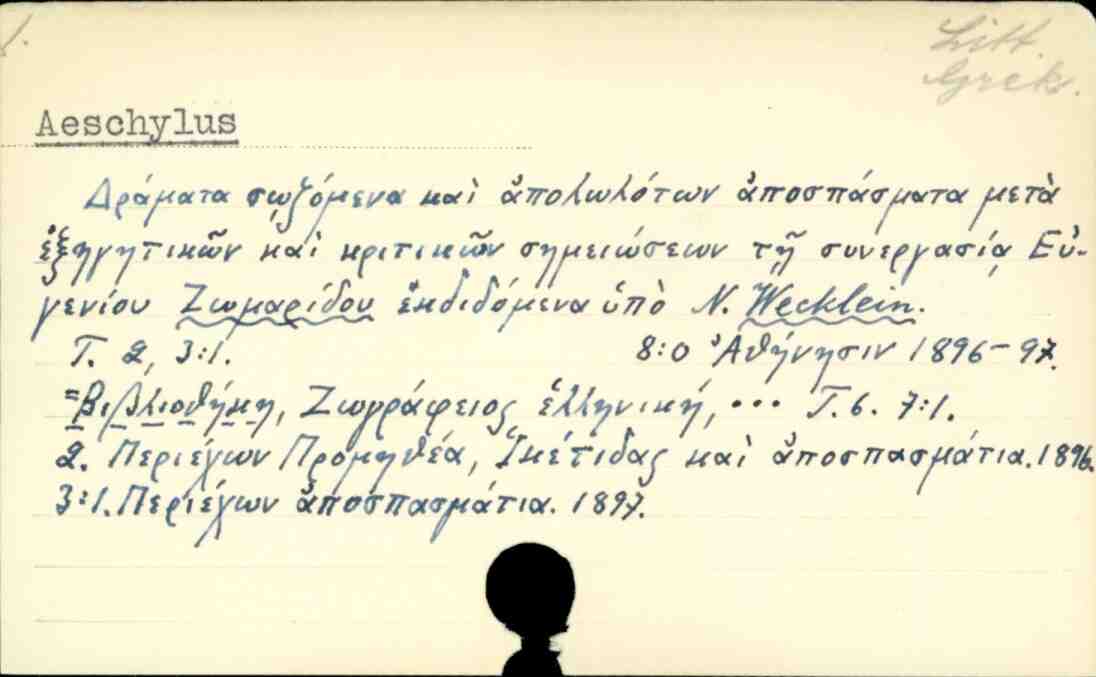 Litt.
Grek.
Aeschylus
Δράματα σῳζόμενα καὶ ἀπολωλότων ἀποσπάσματα μετὰ
ἐξηγητικῶν καὶ κριτικῶν σημειώσεων τῇ συνεργασίᾳ Εὐ-
γενίου Ζωμαρίδου ἐκδιδόμενα ὑπὸ N. Wecklein.
T. 2, 3:1. 8:o Ἀθήνησιν 1896-97.
=Βιβλιοθήκη, Ζωγράφειος ἑλληνική, ... T. 6. 7:1.
2. Περιέχων Προμηθέα, Ἱκέτιδας καὶ ἀποσπασμάτια. 1896.
3:1. Περιέχων ἀποσπασμάτια. 1897.